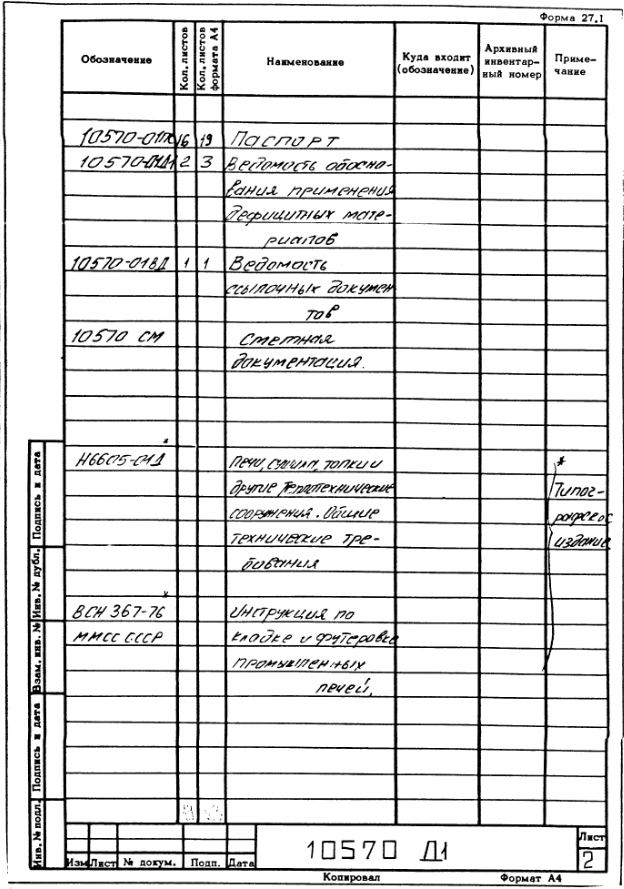 Форма 27.1
Обозначение Кол. листов Кол. листов формата А4 Наименование Куда входит (обозначение) Архивный инвентар-ный номер Приме-чание
16 19 Паспорт
2 3 Ведомость обосно-
вания применения
дефицитных мате-
риалов
10570-01ВД 1 1 Ведомость
ссылочных докумен
тов
10570 СМ Сметная
документация.
Н6605-01Д * Печи, сушила, топки и *
другие теплотехнические Типог-
сооружения. Общие рафское
технические тре- издание
бования
ВСН 367-76 * Инструкция по
ММСС СССР кладке и футеровке
промышленных
печей.
Инв. № подл. Подпись и дата Взам. инв. № Инв. № дубл. Подпись и дата
Изм Лист № докум. Подп. Дата
10570 Д1
Лист
2
Копировал Формат А4